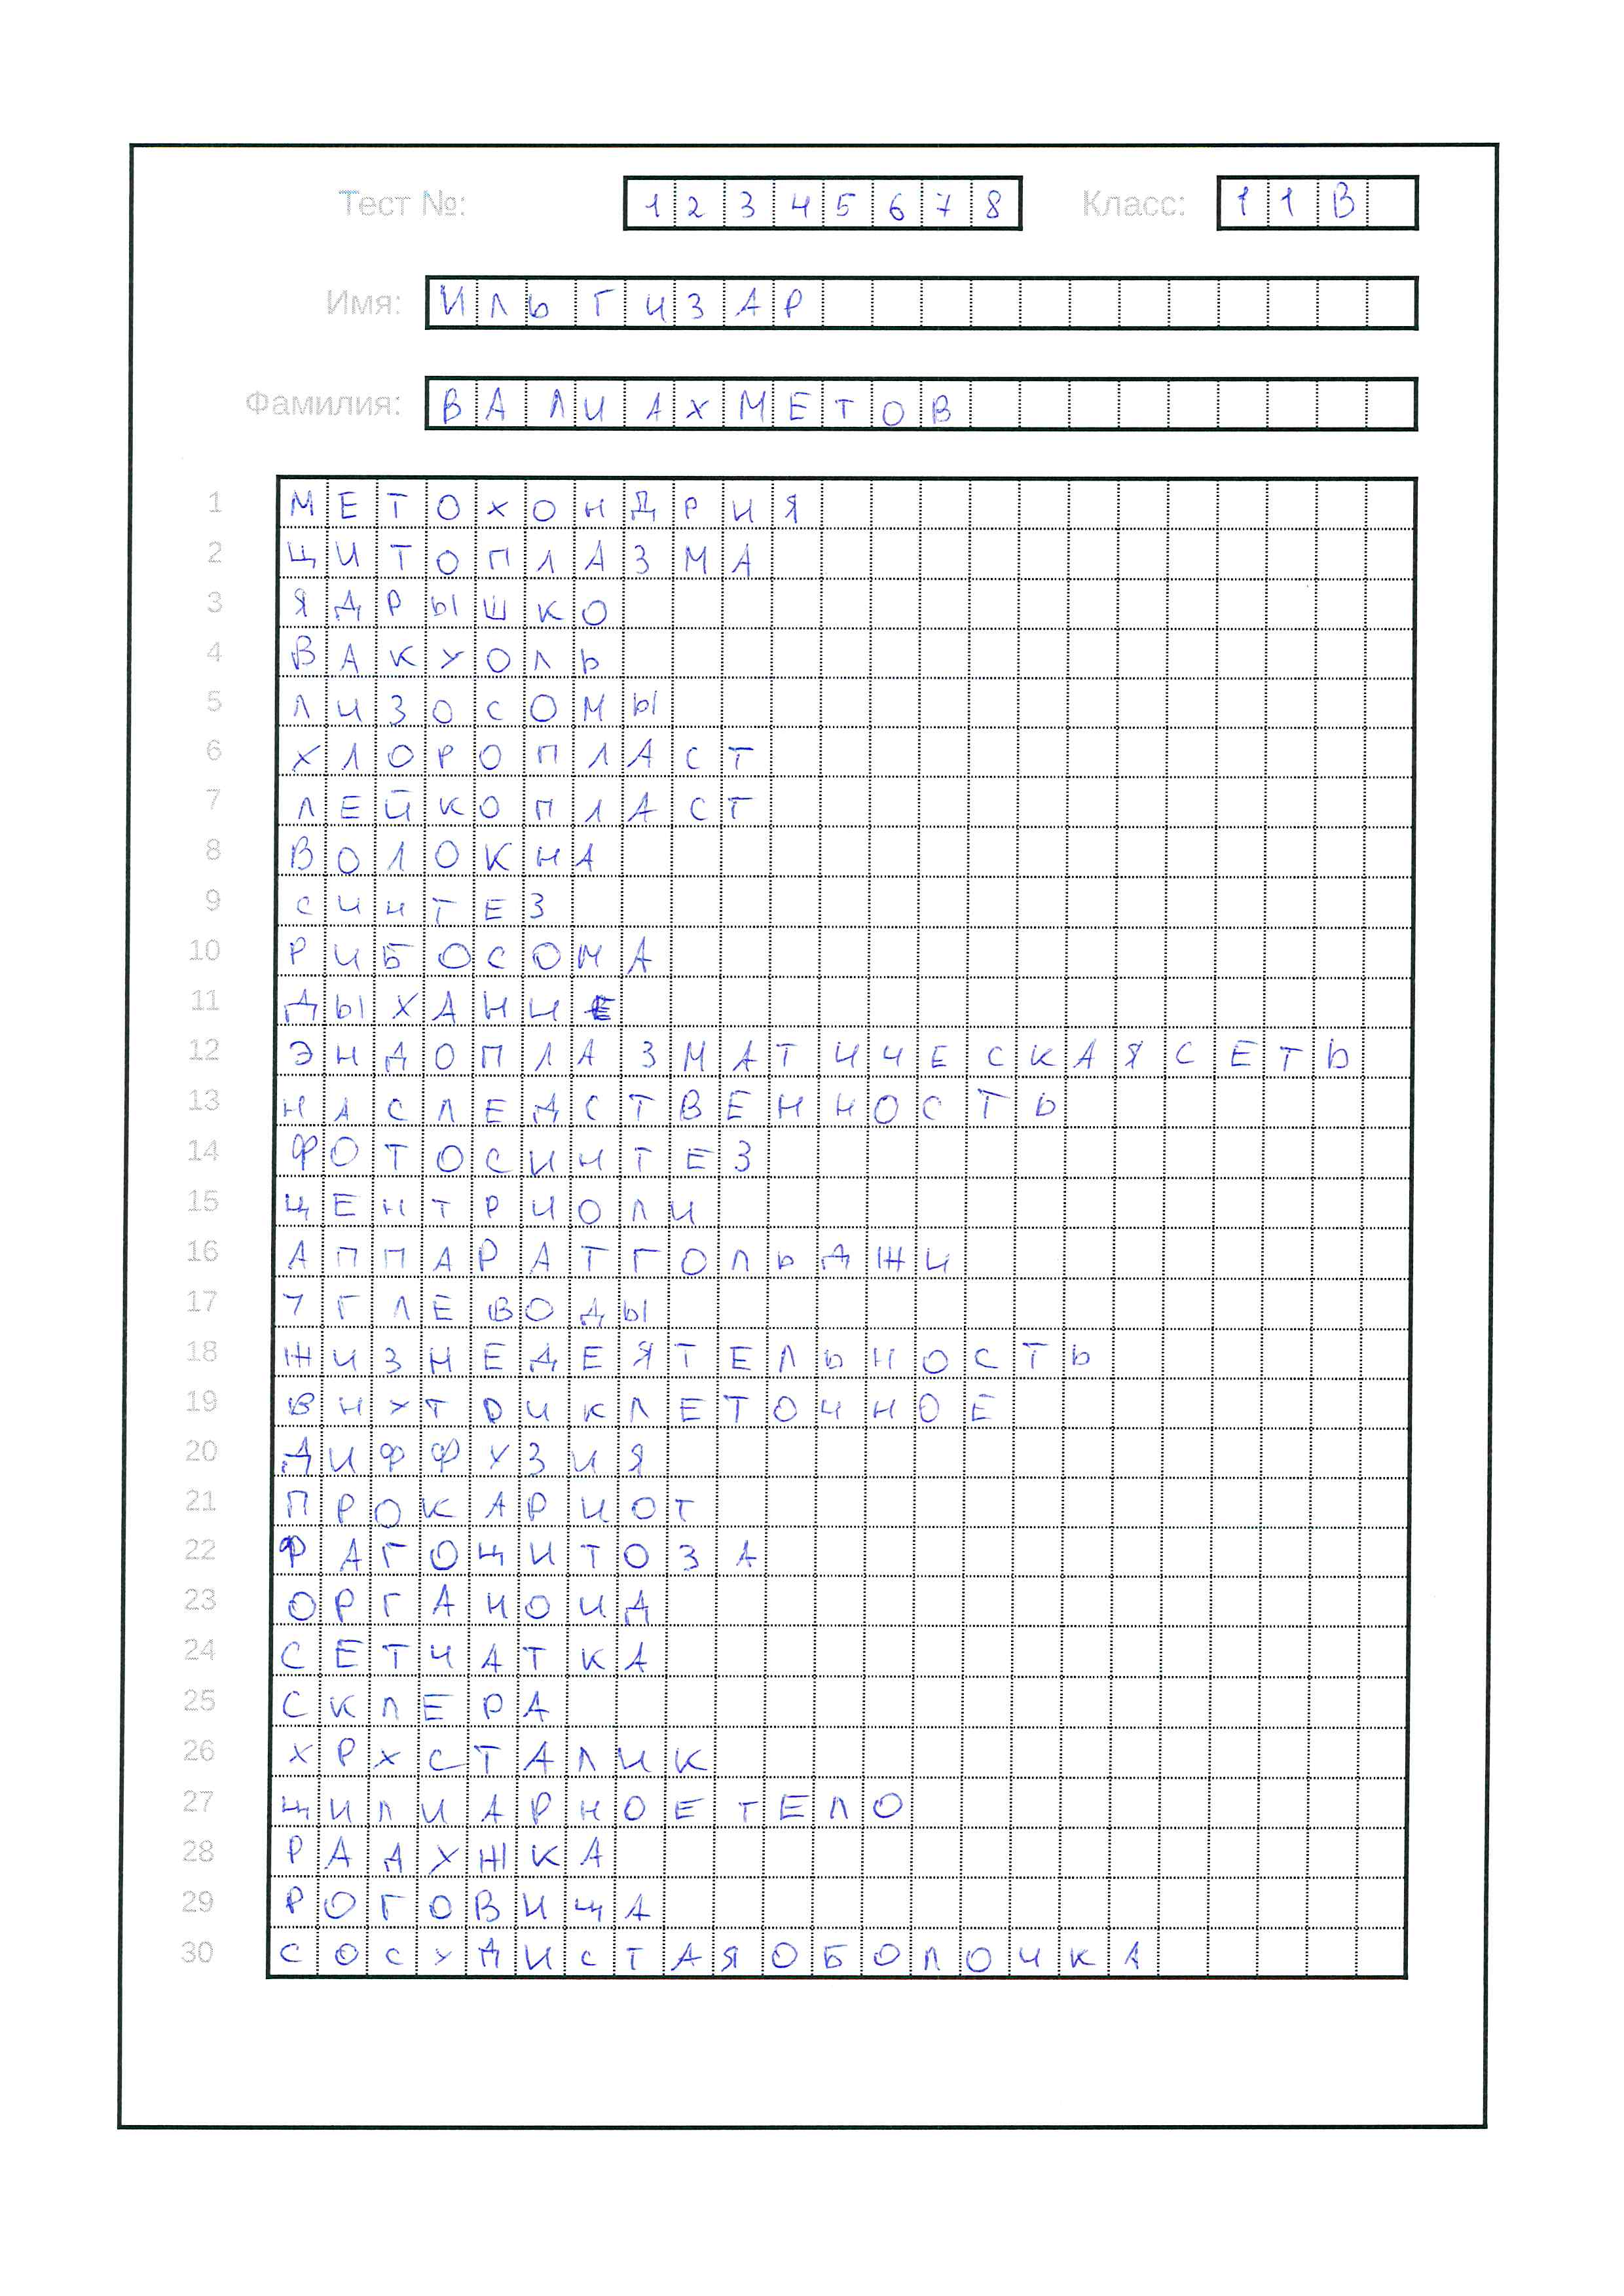 Тест №: 12345678 Класс: 11В
Имя: ИЛЬГИЗАР
Фамилия: ВАЛИАХМЕТОВ
1 МЕТОХОНДРИЯ
2 ЦИТОПЛАЗМА
3 ЯДРЫШКО
4 ВАКУОЛЬ
5 ЛИЗОСОМЫ
6 ХЛОРОПЛАСТ
7 ЛЕЙКОПЛАСТ
8 ВОЛОКНА
9 СИНТЕЗ
10 РИБОСОМА
11 ДЫХАНИЕ
12 ЭНДОПЛАЗМАТИЧЕСКАЯСЕТЬ
13 НАСЛЕДСТВЕННОСТЬ
14 ФОТОСИНТЕЗ
15 ЦЕНТРИОЛИ
16 АППАРАТГОЛЬДЖИ
17 УГЛЕВОДЫ
18 ЖИЗНЕДЕЯТЕЛЬНОСТЬ
19 ВНУТРИКЛЕТОЧНОЕ
20 ДИФФУЗИЯ
21 ПРОКАРИОТ
22 ФАГОЦИТОЗА
23 ОРГАНОИД
24 СЕТЧАТКА
25 СКЛЕРА
26 ХРХСТАЛИК
27 ЦИЛИАРНОЕТЕЛО
28 РАДУЖКА
29 РОГОВИЦА
30 СОСУДИСТАЯОБОЛОЧКА